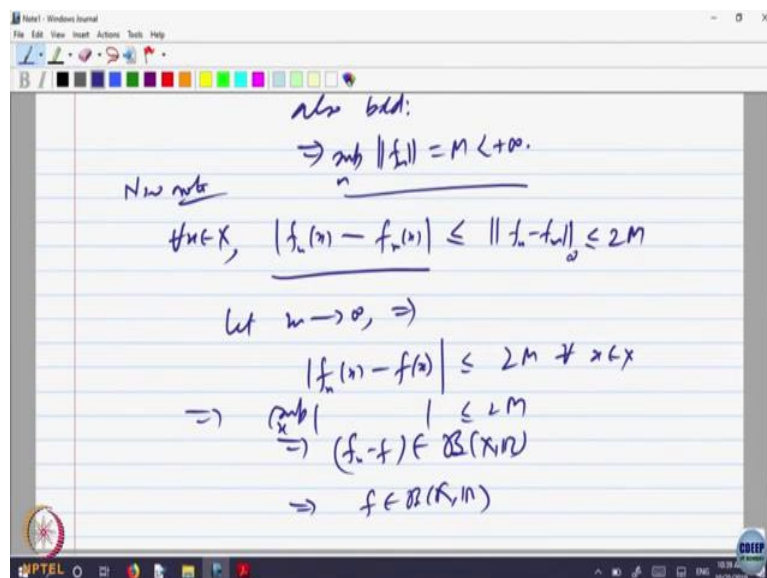 Note1 - Windows Journal
File Edit View Insert Actions Tools Help
B I
also bdd:
⇒ sup_n ||f_n|| = M < +∞.
Now note
∀x∈X, |f_n(x) − f_m(x)| ≤ ||f_n − f_m||_∞ ≤ 2M
Let m → ∞, ⇒
|f_n(x) − f(x)| ≤ 2M ∀ x∈X
⇒ sup_x | | ≤ 2M
⇒ (f_n − f) ∈ B(X, ℝ)
⇒ f ∈ B(X, ℝ)
NPTEL
CDEEP
ENG